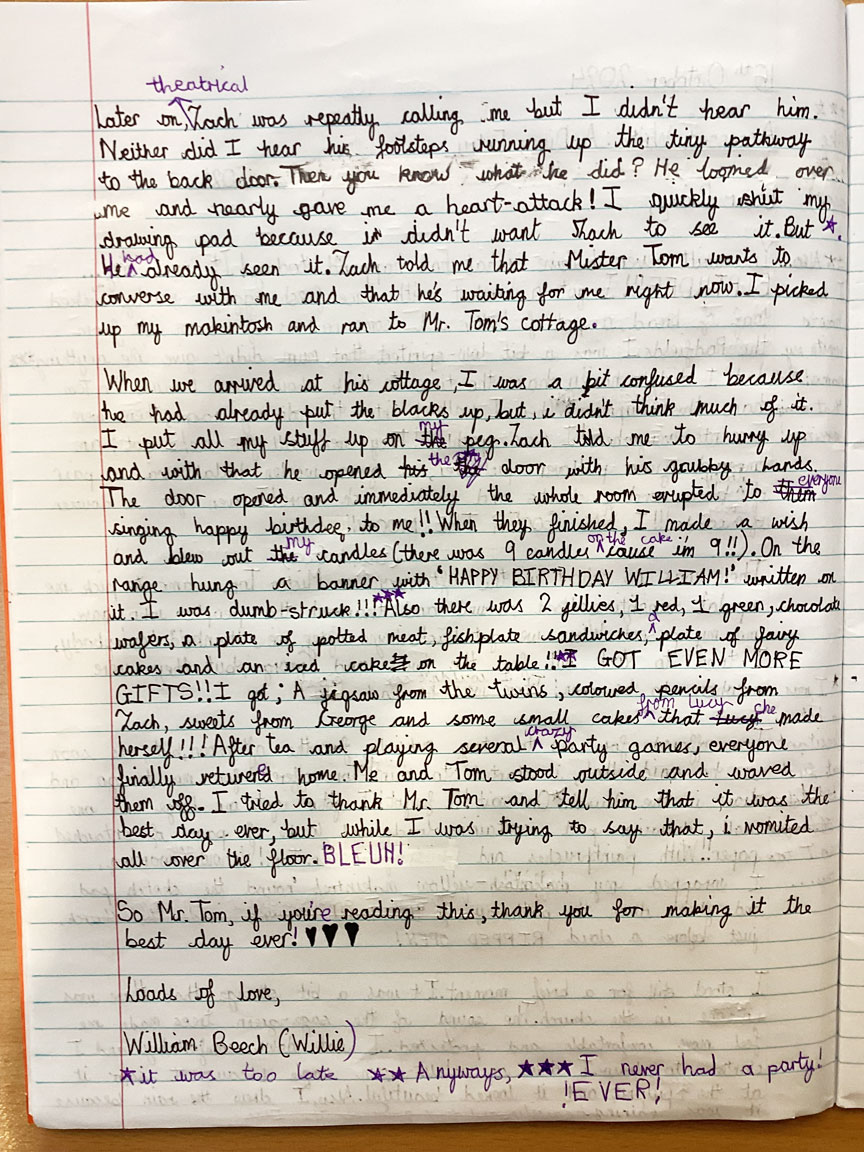 theatrical
Later on, Zach was repeatly calling me but I didn't hear him.
Neither did I hear his footsteps running up the tiny pathway
to the back door. Then you know what he did? He loomed over
me and nearly gave me a heart-attack! I quickly shut my
drawing pad because i didn't want Zach to see it. But *.
He had already seen it. Zach told me that Mister Tom wants to
converse with me and that he's waiting for me right now. I picked
up my makintosh and ran to Mr. Tom's cottage.
When we arrived at his cottage, I was a bit confused because
he had already put the blacks up, but, i didn't think much of it.
I put all my stuff up on the my peg. Zach told me to hurry up
and with that he opened his the door with his grubby hands.
The door opened and immediately the whole room erupted to them everyone
singing happy birthdee, to me!! When they finished, I made a wish
and blew out the my candles (there was 9 candles on the cake 'cause i'm 9!!). On the
range hung a banner with 'HAPPY BIRTHDAY WILLIAM!' written on
it. I was dumb-struck!!! *** Also there was 2 jillies, 1 red, 1 green, chocolate
wafers, a plate of potted meat, fishplate sandwiches, a plate of fairy
cakes and an iced cake on the table!! ** I GOT EVEN MORE
GIFTS!! I got; A jigsaw from the twins, coloured pencils from
Zach, sweats from George and some small cakes from Lucy that Lucy she made
herself!!! After tea and playing several crazy party games, everyone
finally retured home. Me and Tom stood outside and waved
them off. I tried to thank Mr. Tom and tell him that it was the
best day ever, but while I was trying to say that, i vomited
all over the floor. BLEUH!
So Mr. Tom, if you're reading this, thank you for making it the
best day ever! ♥♥♥
Loads of love,
William Beech (Willie)
*it was too late ** Anyways, *** I never had a party!
!EVER!